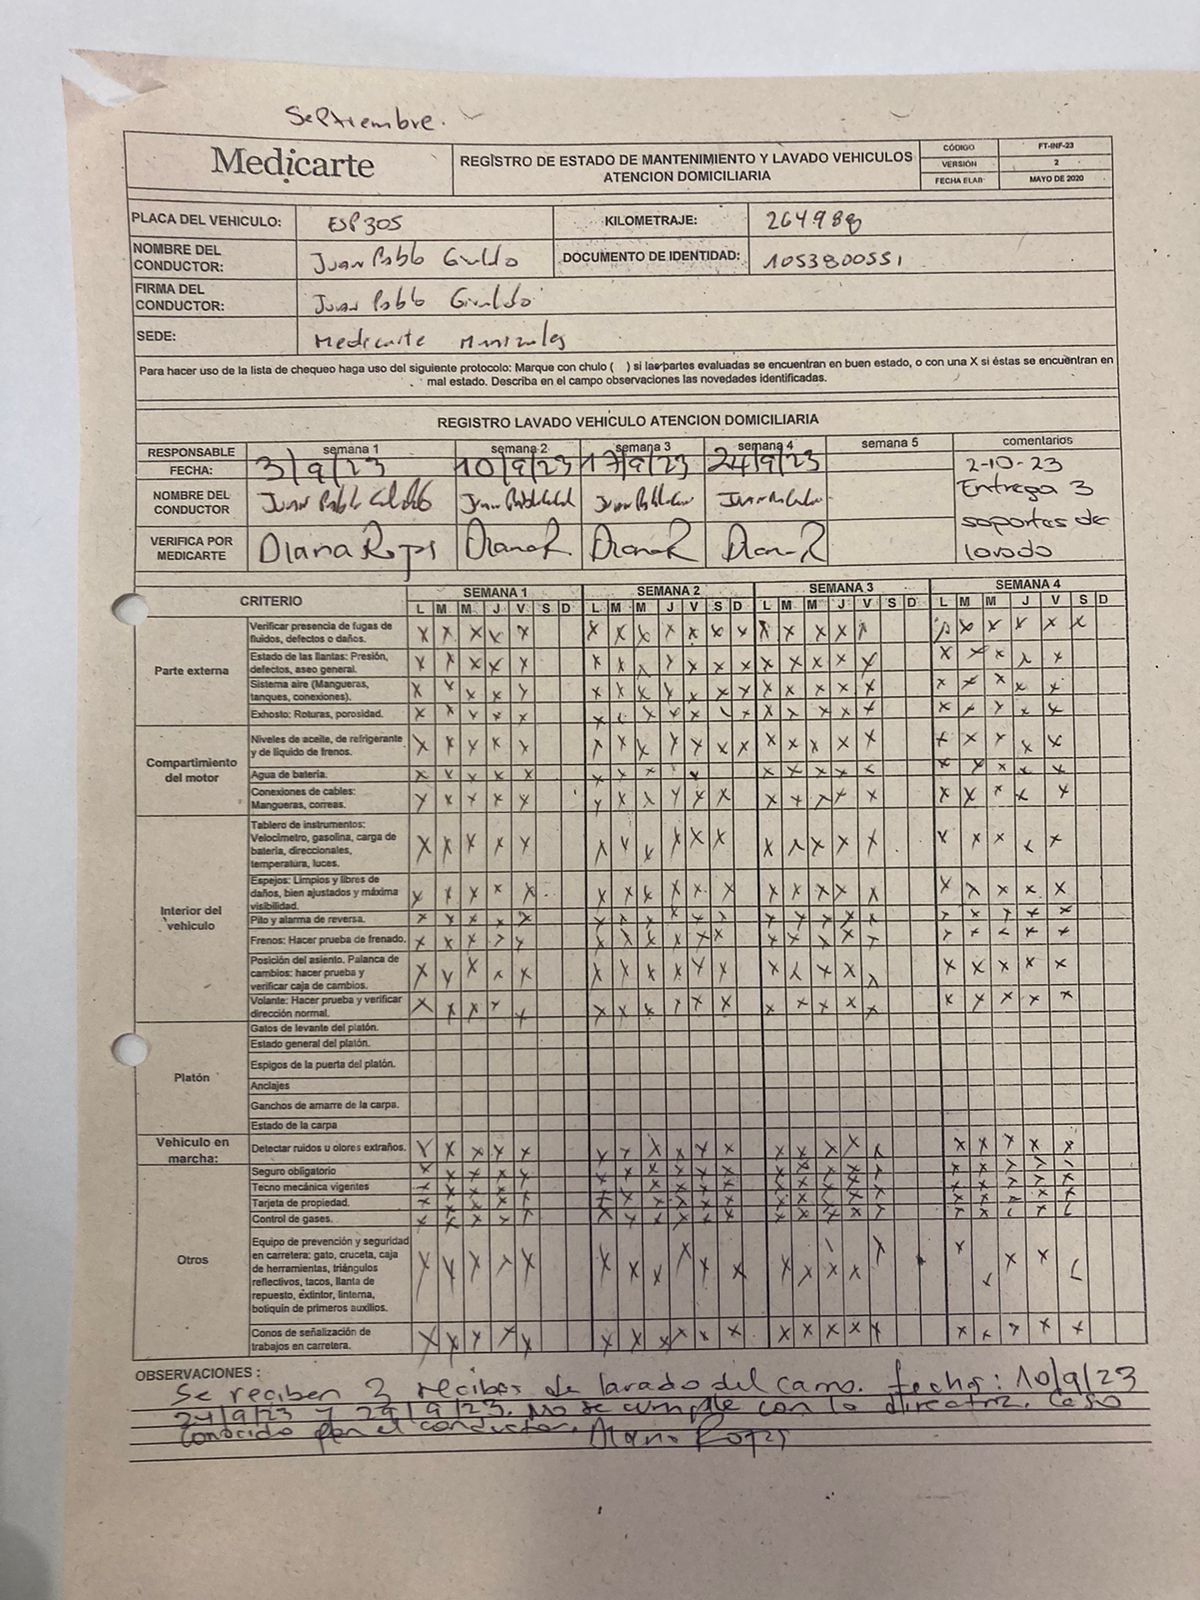 Septiembre.
Medicarte
REGISTRO DE ESTADO DE MANTENIMIENTO Y LAVADO VEHICULOS
ATENCION DOMICILIARIA
CÓDIGO FT-INF-23
VERSIÓN 2
FECHA ELAB MAYO DE 2020
PLACA DEL VEHICULO: ESP305 KILOMETRAJE: 264988
NOMBRE DEL CONDUCTOR: Juan Pablo Giraldo DOCUMENTO DE IDENTIDAD: 1053800551
FIRMA DEL CONDUCTOR: Juan Pablo Giraldo
SEDE: Medicarte Manizales
Para hacer uso de la lista de chequeo haga uso del siguiente protocolo: Marque con chulo ( ) si las partes evaluadas se encuentran en buen estado, o con una X si éstas se encuentran en
mal estado. Describa en el campo observaciones las novedades identificadas.
REGISTRO LAVADO VEHICULO ATENCION DOMICILIARIA
RESPONSABLE semana 1 semana 2 semana 3 semana 4 semana 5 comentarios
FECHA: 3/9/23 10/9/23 17/9/23 24/9/23
2-10-23
Entrega 3
soportes de
lavado
NOMBRE DEL CONDUCTOR Juan Pablo
VERIFICA POR MEDICARTE Diana Rojas Diana R Diana R Diana R
CRITERIO SEMANA 1 SEMANA 2 SEMANA 3 SEMANA 4
L M M J V S D L M M J V S D L M M J V S D L M M J V S D
Parte externa
Verificar presencia de fugas de
fluidos, defectos o daños.
Estado de las llantas: Presión,
defectos, aseo general.
Sistema aire (Mangueras,
tanques, conexiones).
Exhosto: Roturas, porosidad.
Compartimiento
del motor
Niveles de aceite, de refrigerante
y de líquido de frenos.
Agua de batería.
Conexiones de cables:
Mangueras, correas.
Interior del
vehiculo
Tablero de instrumentos:
Velocímetro, gasolina, carga de
batería, direccionales,
temperatura, luces.
Espejos: Limpios y libres de
daños, bien ajustados y máxima
visibilidad.
Pito y alarma de reversa.
Frenos: Hacer prueba de frenado.
Posición del asiento. Palanca de
cambios: hacer prueba y
verificar caja de cambios.
Volante: Hacer prueba y verificar
dirección normal.
Platón
Gatos de levante del platón.
Estado general del platón.
Espigos de la puerta del platón.
Anclajes
Ganchos de amarre de la carpa.
Estado de la carpa
Vehiculo en
marcha:
Detectar ruidos u olores extraños.
Otros
Seguro obligatorio
Tecno mecánica vigentes
Tarjeta de propiedad.
Control de gases.
Equipo de prevención y seguridad
en carretera: gato, cruceta, caja
de herramientas, triángulos
reflectivos, tacos, llanta de
repuesto, extintor, linterna,
botiquín de primeros auxilios.
Conos de señalización de
trabajos en carretera.
OBSERVACIONES :
Se reciben 3 recibos de lavado del carro. fecha: 10/9/23
24/9/23 y 29/9/23. No se cumple con la directriz. Caso
conocido por el conductor. Diana Rojas